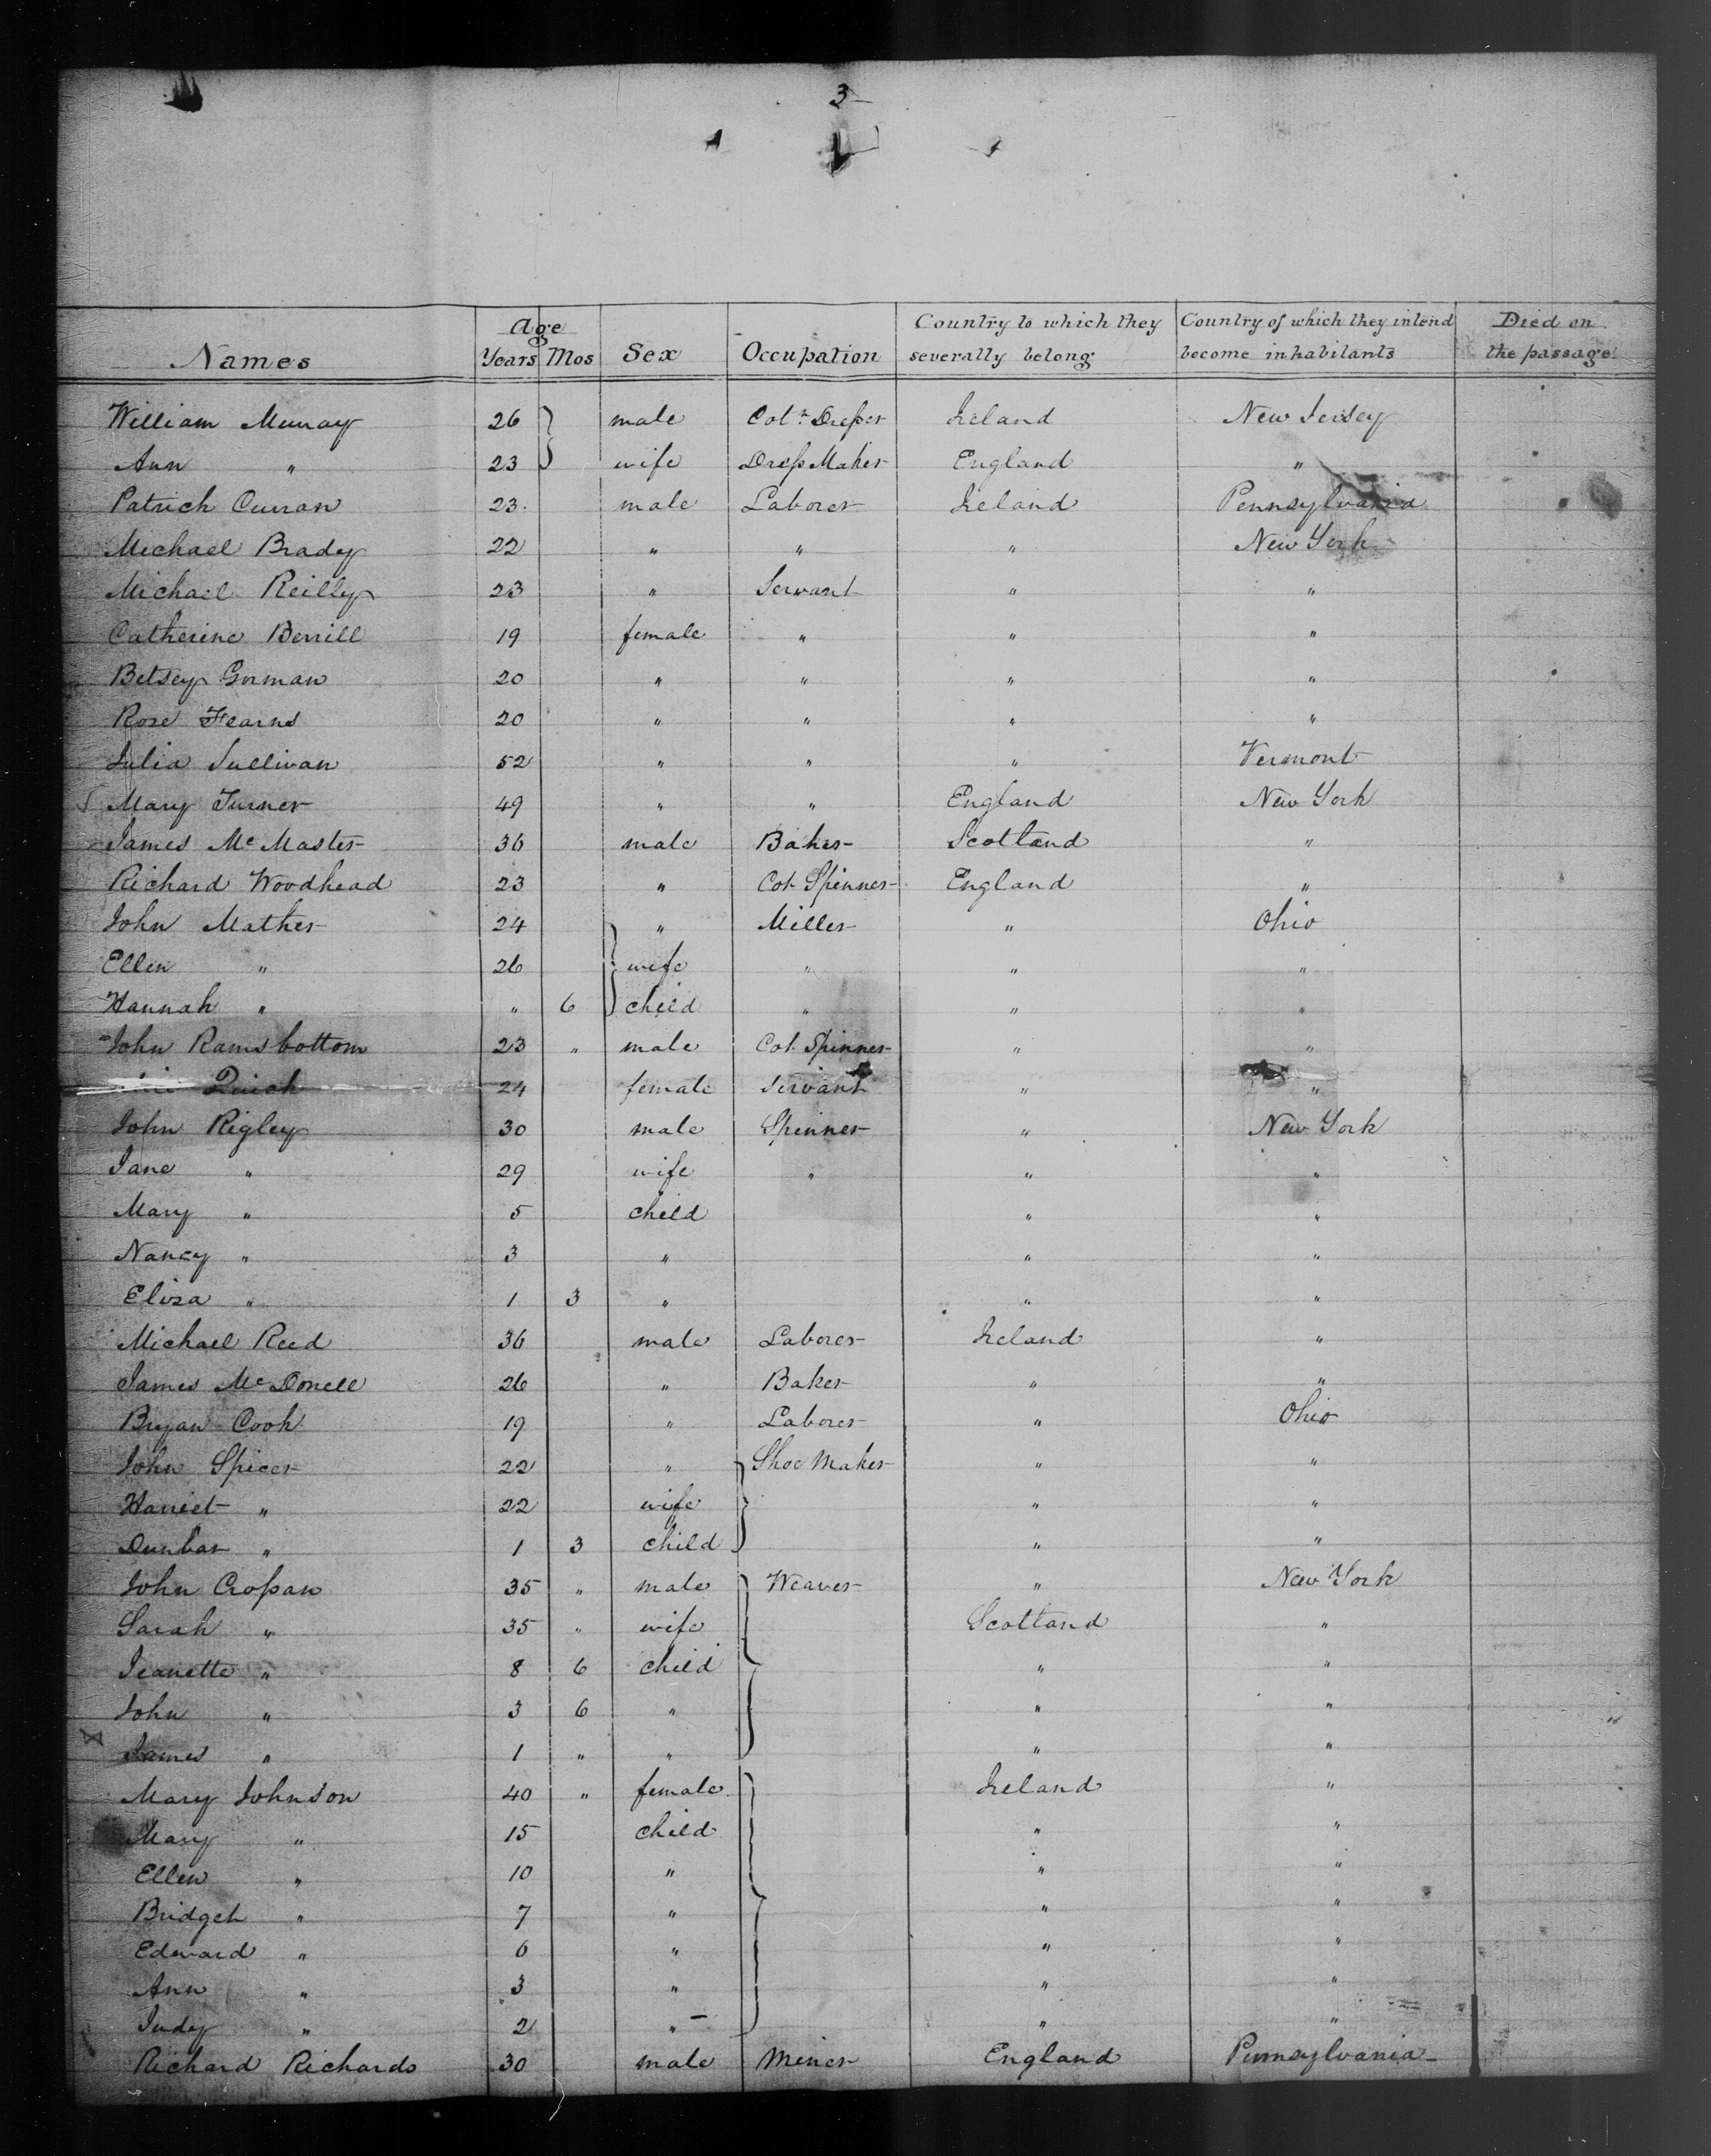 3
Names Age Years Mos Sex Occupation Country to which they severally belong Country of which they intend become inhabitants Died on the passage
William Murray 26 male Cotn Dresser Ireland New Jersey
Ann " 23 wife Dress Maker England "
Patrick Curran 23 male Laborer Ireland Pennsylvania
Michael Brady 22 " " " New York
Michael Reilly 23 " Servant " "
Catherine Berrill 19 female " " "
Betsey Gorman 20 " " " "
Rose Fearns 20 " " " "
Julia Sullivan 52 " " " Vermont
Mary Turner 49 " " England New York
James Mc Master 36 male Baker Scotland "
Richard Woodhead 23 " Cot Spinner England "
John Mather 24 " Miller " Ohio
Ellen " 26 wife " " "
Hannah " " 6 child " " "
John Ramsbottom 23 " male Cot Spinner " "
24 female Servant " "
John Rigley 30 male Spinner " New York
Jane " 29 wife " " "
Mary " 5 child " "
Nancy " 3 " " "
Eliza " 1 3 " " "
Michael Reed 36 male Laborer Ireland "
James Mc Donell 26 " Baker " "
Bryan Cook 19 " Laborer " Ohio
John Spicer 22 " Shoe Maker " "
Harriet " 22 wife " "
Dunbar " 1 3 child " "
John Crossan 35 " male Weaver " New York
Sarah " 35 " wife Scotland "
Jeanette " 8 6 child " "
John " 3 6 " " "
James " 1 " " " "
Mary Johnson 40 " female Ireland "
Mary " 15 child " "
Ellen " 10 " " "
Bridget " 7 " " "
Edward " 6 " " "
Ann " 3 " " "
Judy " 2 " " "
Richard Richards 30 male Miner England Pennsylvania